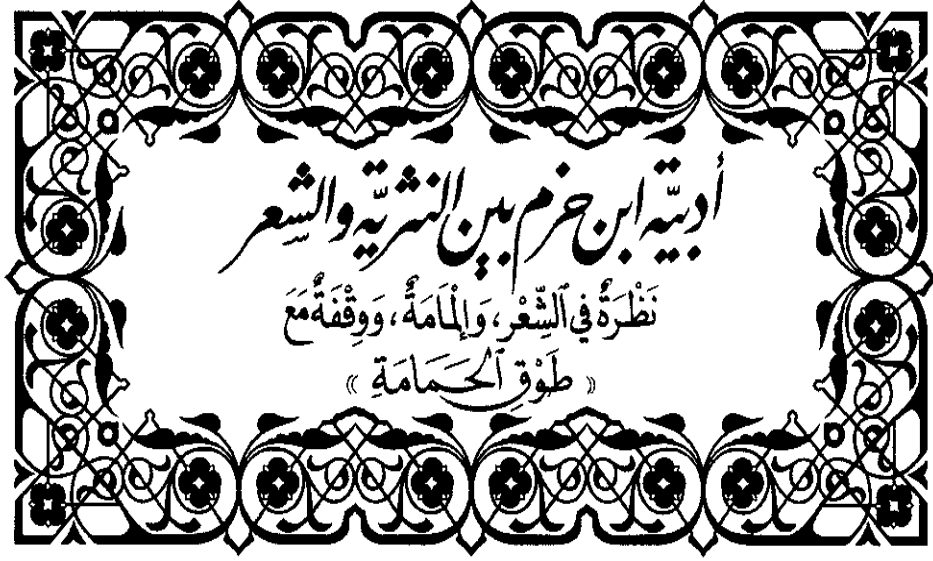 أدبيّة ابن حزم بين النثريّة والشِعر
نَظْرَةٌ في ٱلشِّعْرِ، وَإِلْمَامَةٌ، وَوِقْفَةٌ مَعَ
« طَوْقِ ٱلحَمَامَةِ »